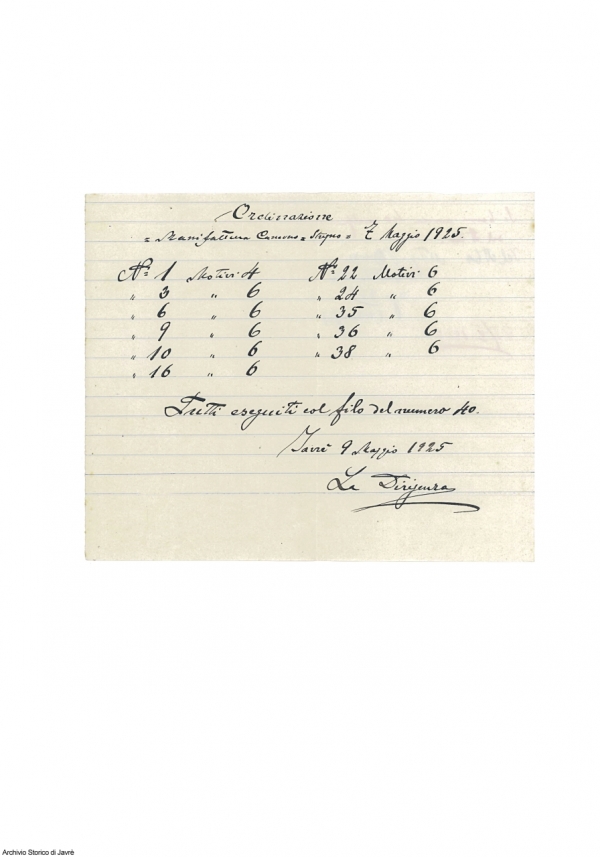 Ordinazione
= Manifattura = Strigno = 7 Maggio 1925.
Nº 1 Motivi 4 Nº 22 Motivi 6
" 3 " 6 " 24 " 6
" 6 " 6 " 35 " 6
" 9 " 6 " 36 " 6
" 10 " 6 " 38 " 6
" 16 " 6
Tutti eseguiti col filo del numero 40.
Javrè 9 Maggio 1925
La Dirigenza
Archivio Storico di Javrè